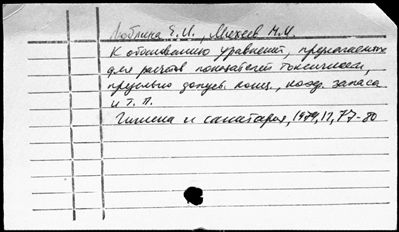 Люблина Е.И., Михеев М.И.
К отысканию уравнений, предлагаемых
для расчетов показателей токсичности,
предельно допуст. конц., коэф. запаса
и т. п.
Гигиена и санитария, 1974, 11, 77-80